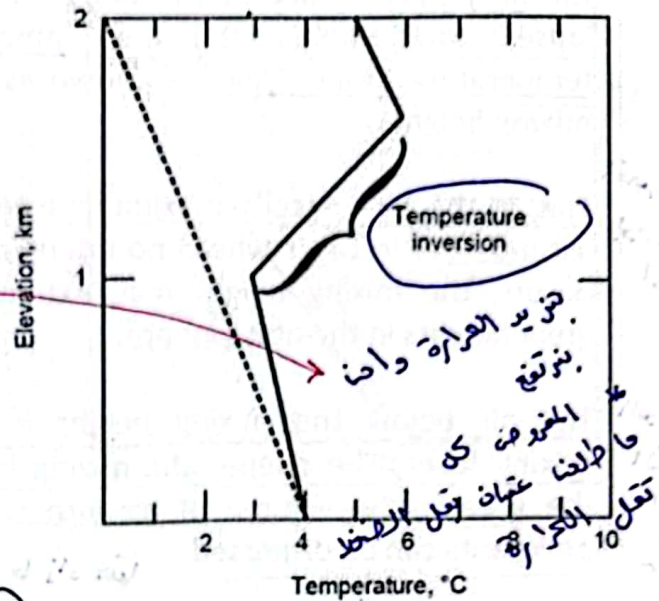 2
Elevation, km
Temperature
inversion
1
بتزيد الحرارة واحنا
بنرتفع
* المفروض كل
ما طلعنا عشان يقل الضغط
تقل الحرارة
2
4
6
8
10
Temperature, °C